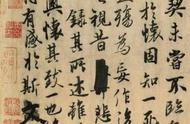 契未嘗不臨
於懷固知一
殤為妄作後
視昔
錄其所述雖
懷其致一也
有感於斯